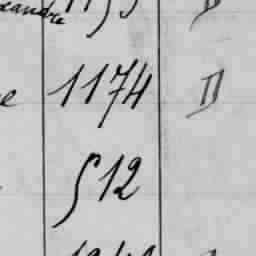 xandre
e 1174 II
512